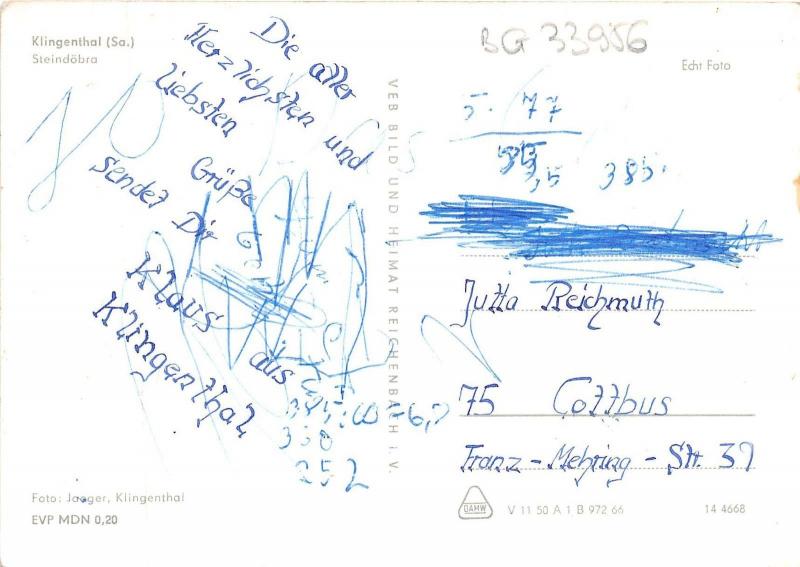 Klingenthal (Sa.)
Steindöbra
BG 33956
Echt Foto
Die aller
Herzlichsten und
liebsten Grüße
sendet Dir
Klaus aus
Klingenthal
VEB BILD UND HEIMAT REICHENBACH i. V.
5. 77
3,5 385.
Jutta Reichmuth
75 Cottbus
Franz - Mehring - Str. 39
330
252
Foto: Jaeger, Klingenthal
EVP MDN 0,20
DAMW
V 11 50 A 1 B 972 66
14 4668